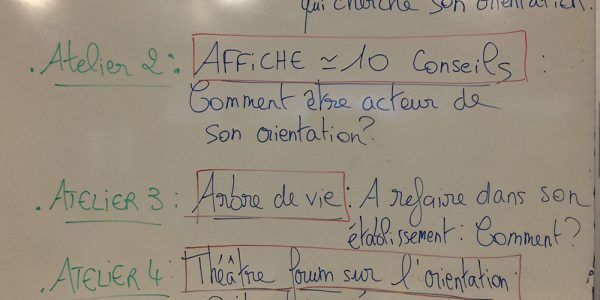 qui cherche son orientation.
. Atelier 2 : AFFiCHE ≃ 10 Conseils :
Comment être acteur de
son orientation?
. ATELIER 3 : Arbre de vie : A refaire dans son
établissement : Comment?
. ATELIER 4 : Théâtre forum sur l'orientation